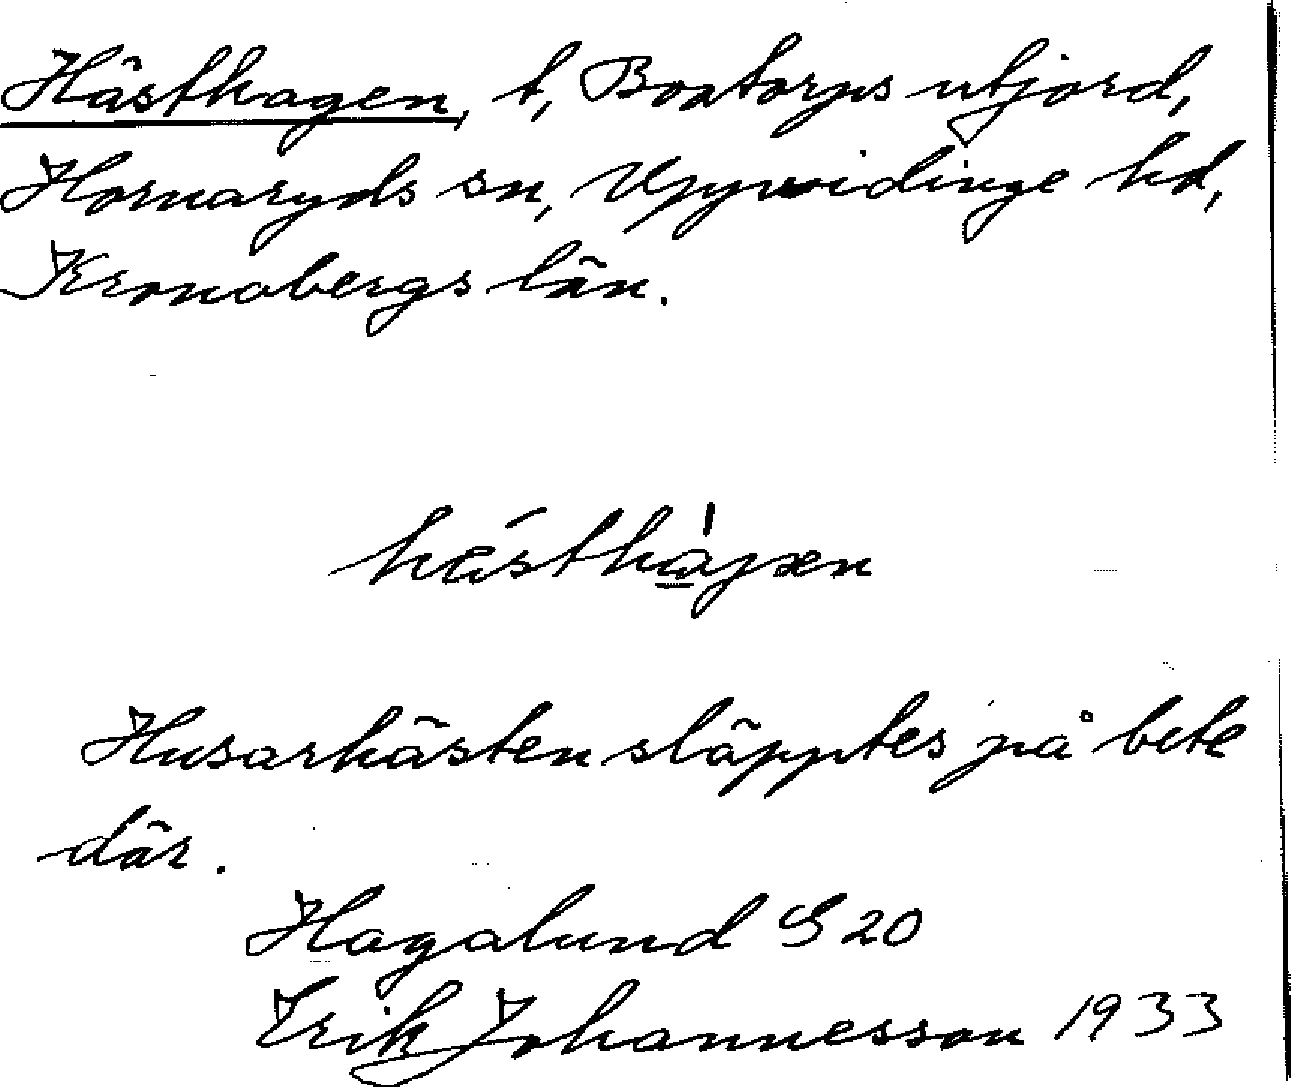 Hästhagen, t, Boatorps utjord,
Hornaryds sn, Uppvidinge hd,
Kronobergs län.
hästha̱gen
Husarhästen släpptes på bete
där.
Hagalund S 20
Erik Johannesson 1933